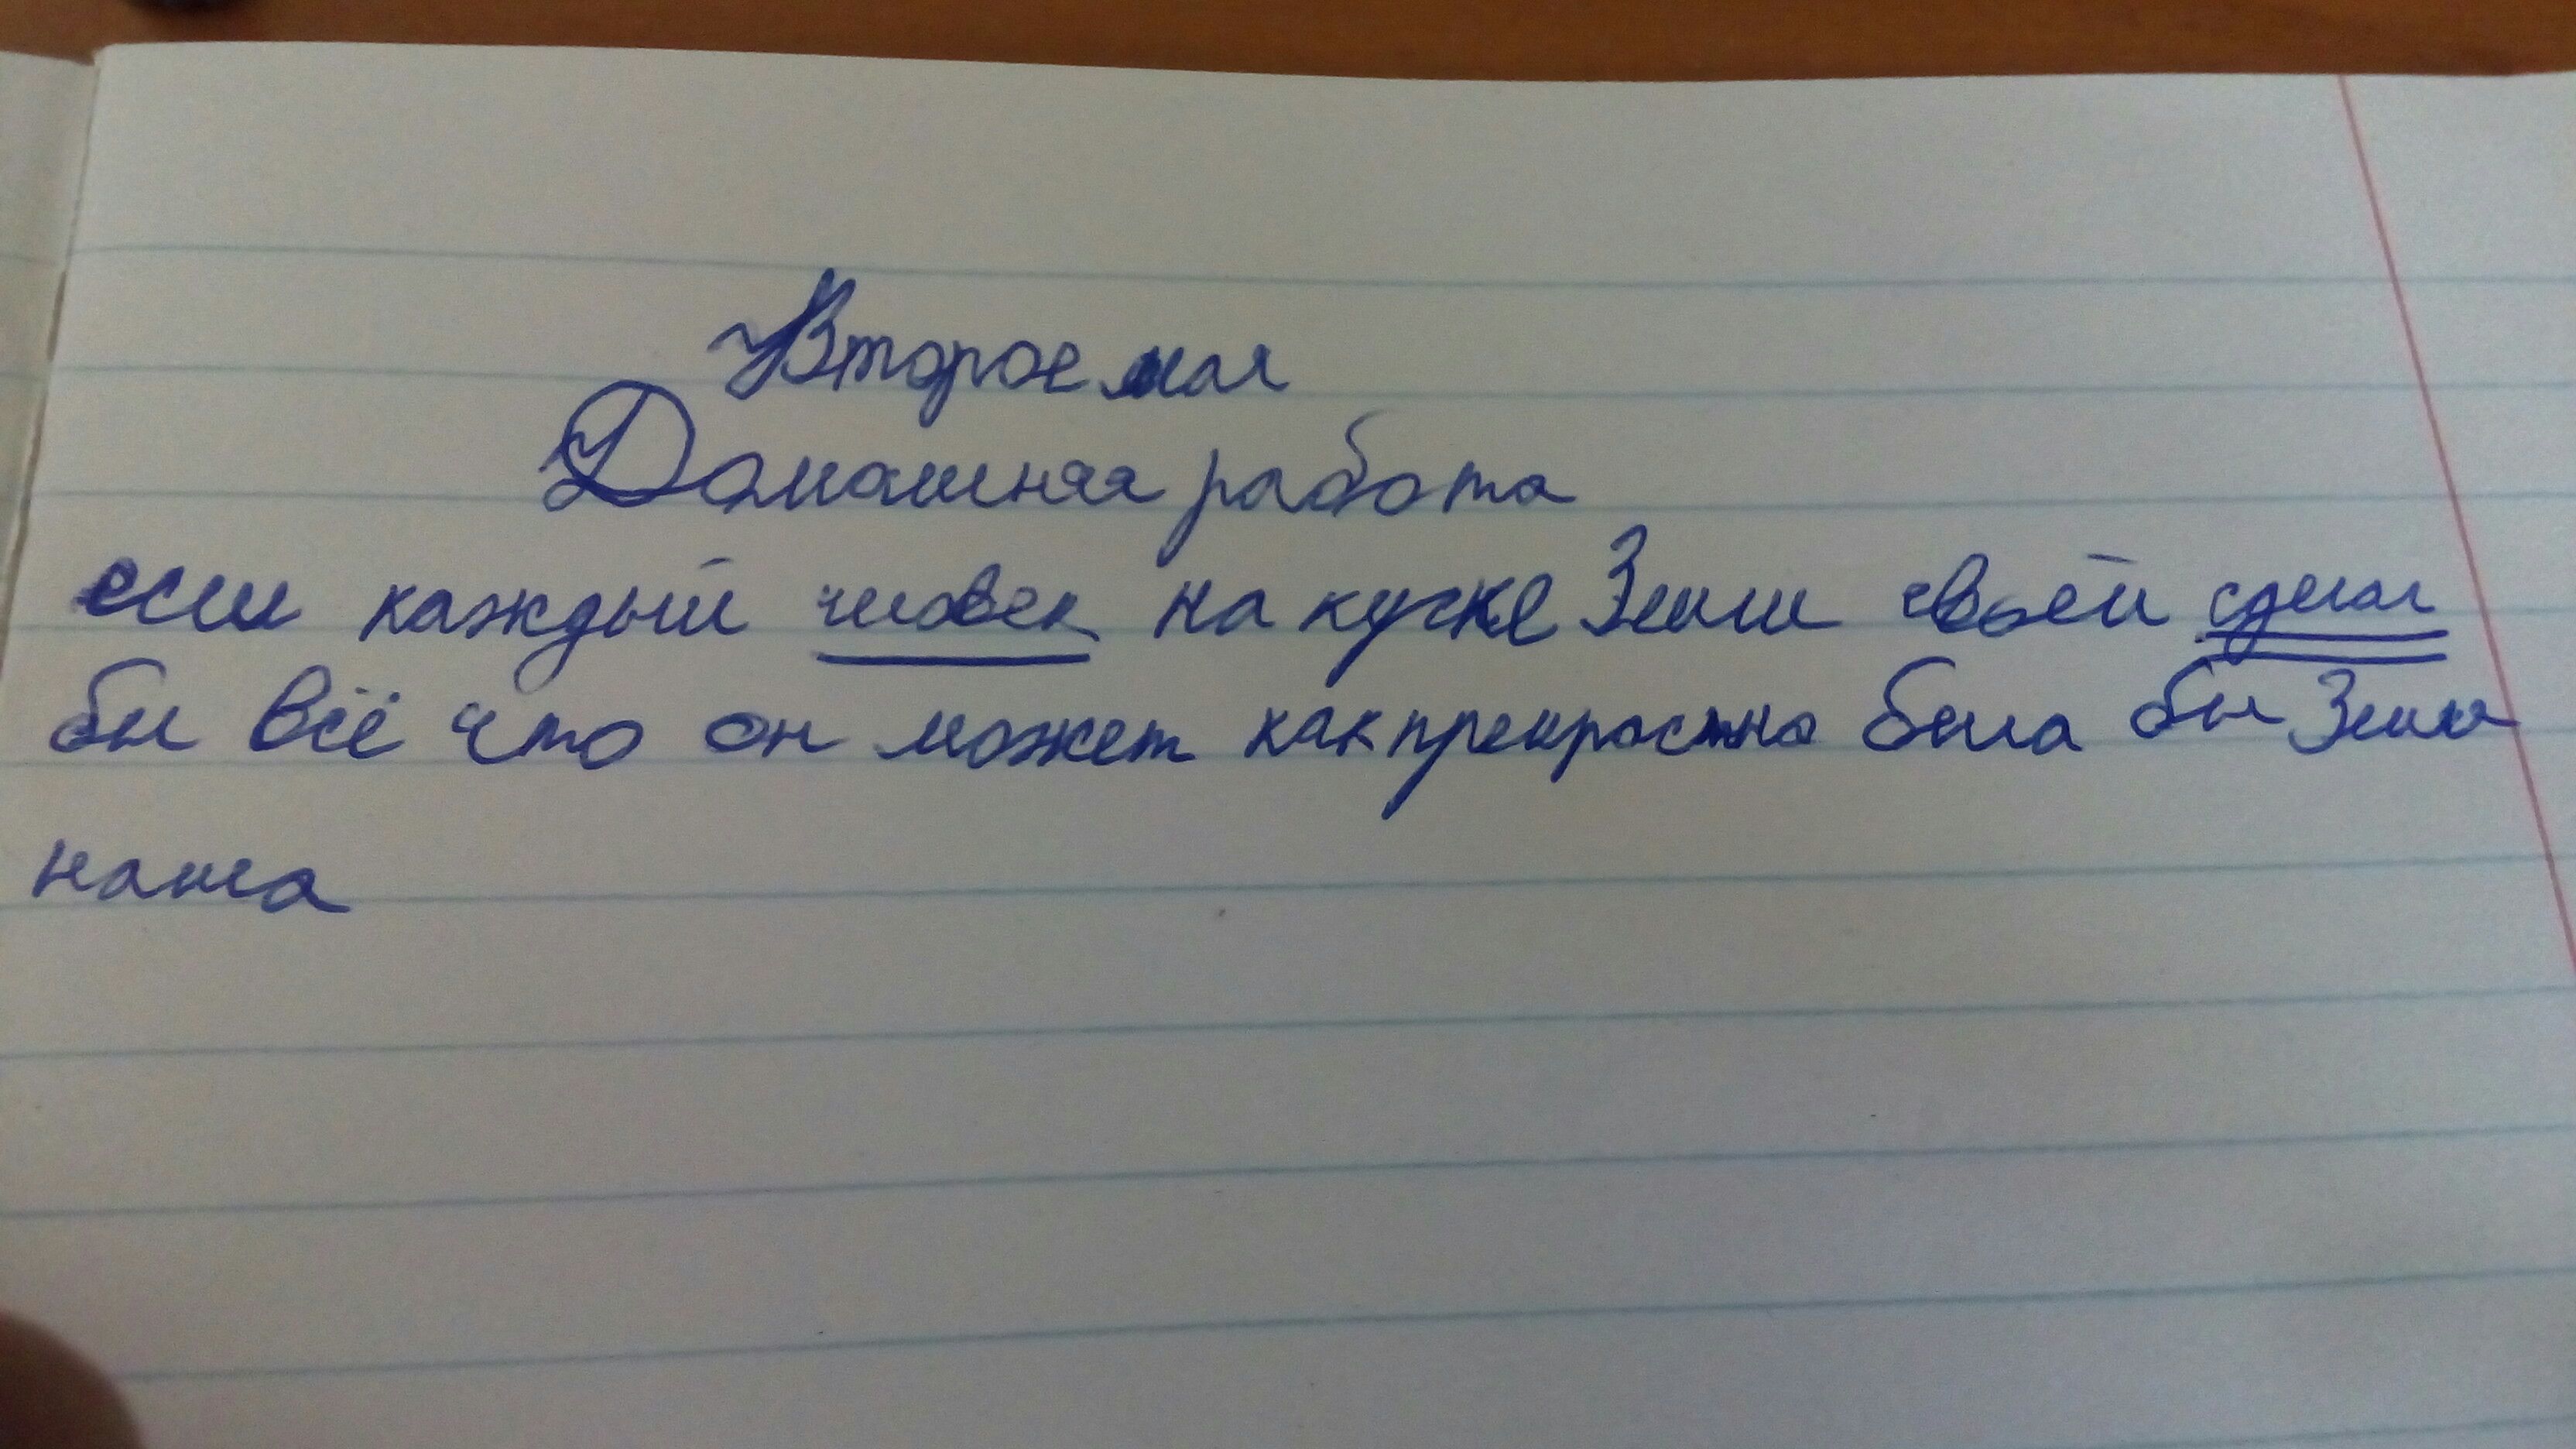 Второе мая
Домашняя работа
если каждый человек на куске Земли своей сделал
бы всё что он может как прекрастна была бы Земля
наша